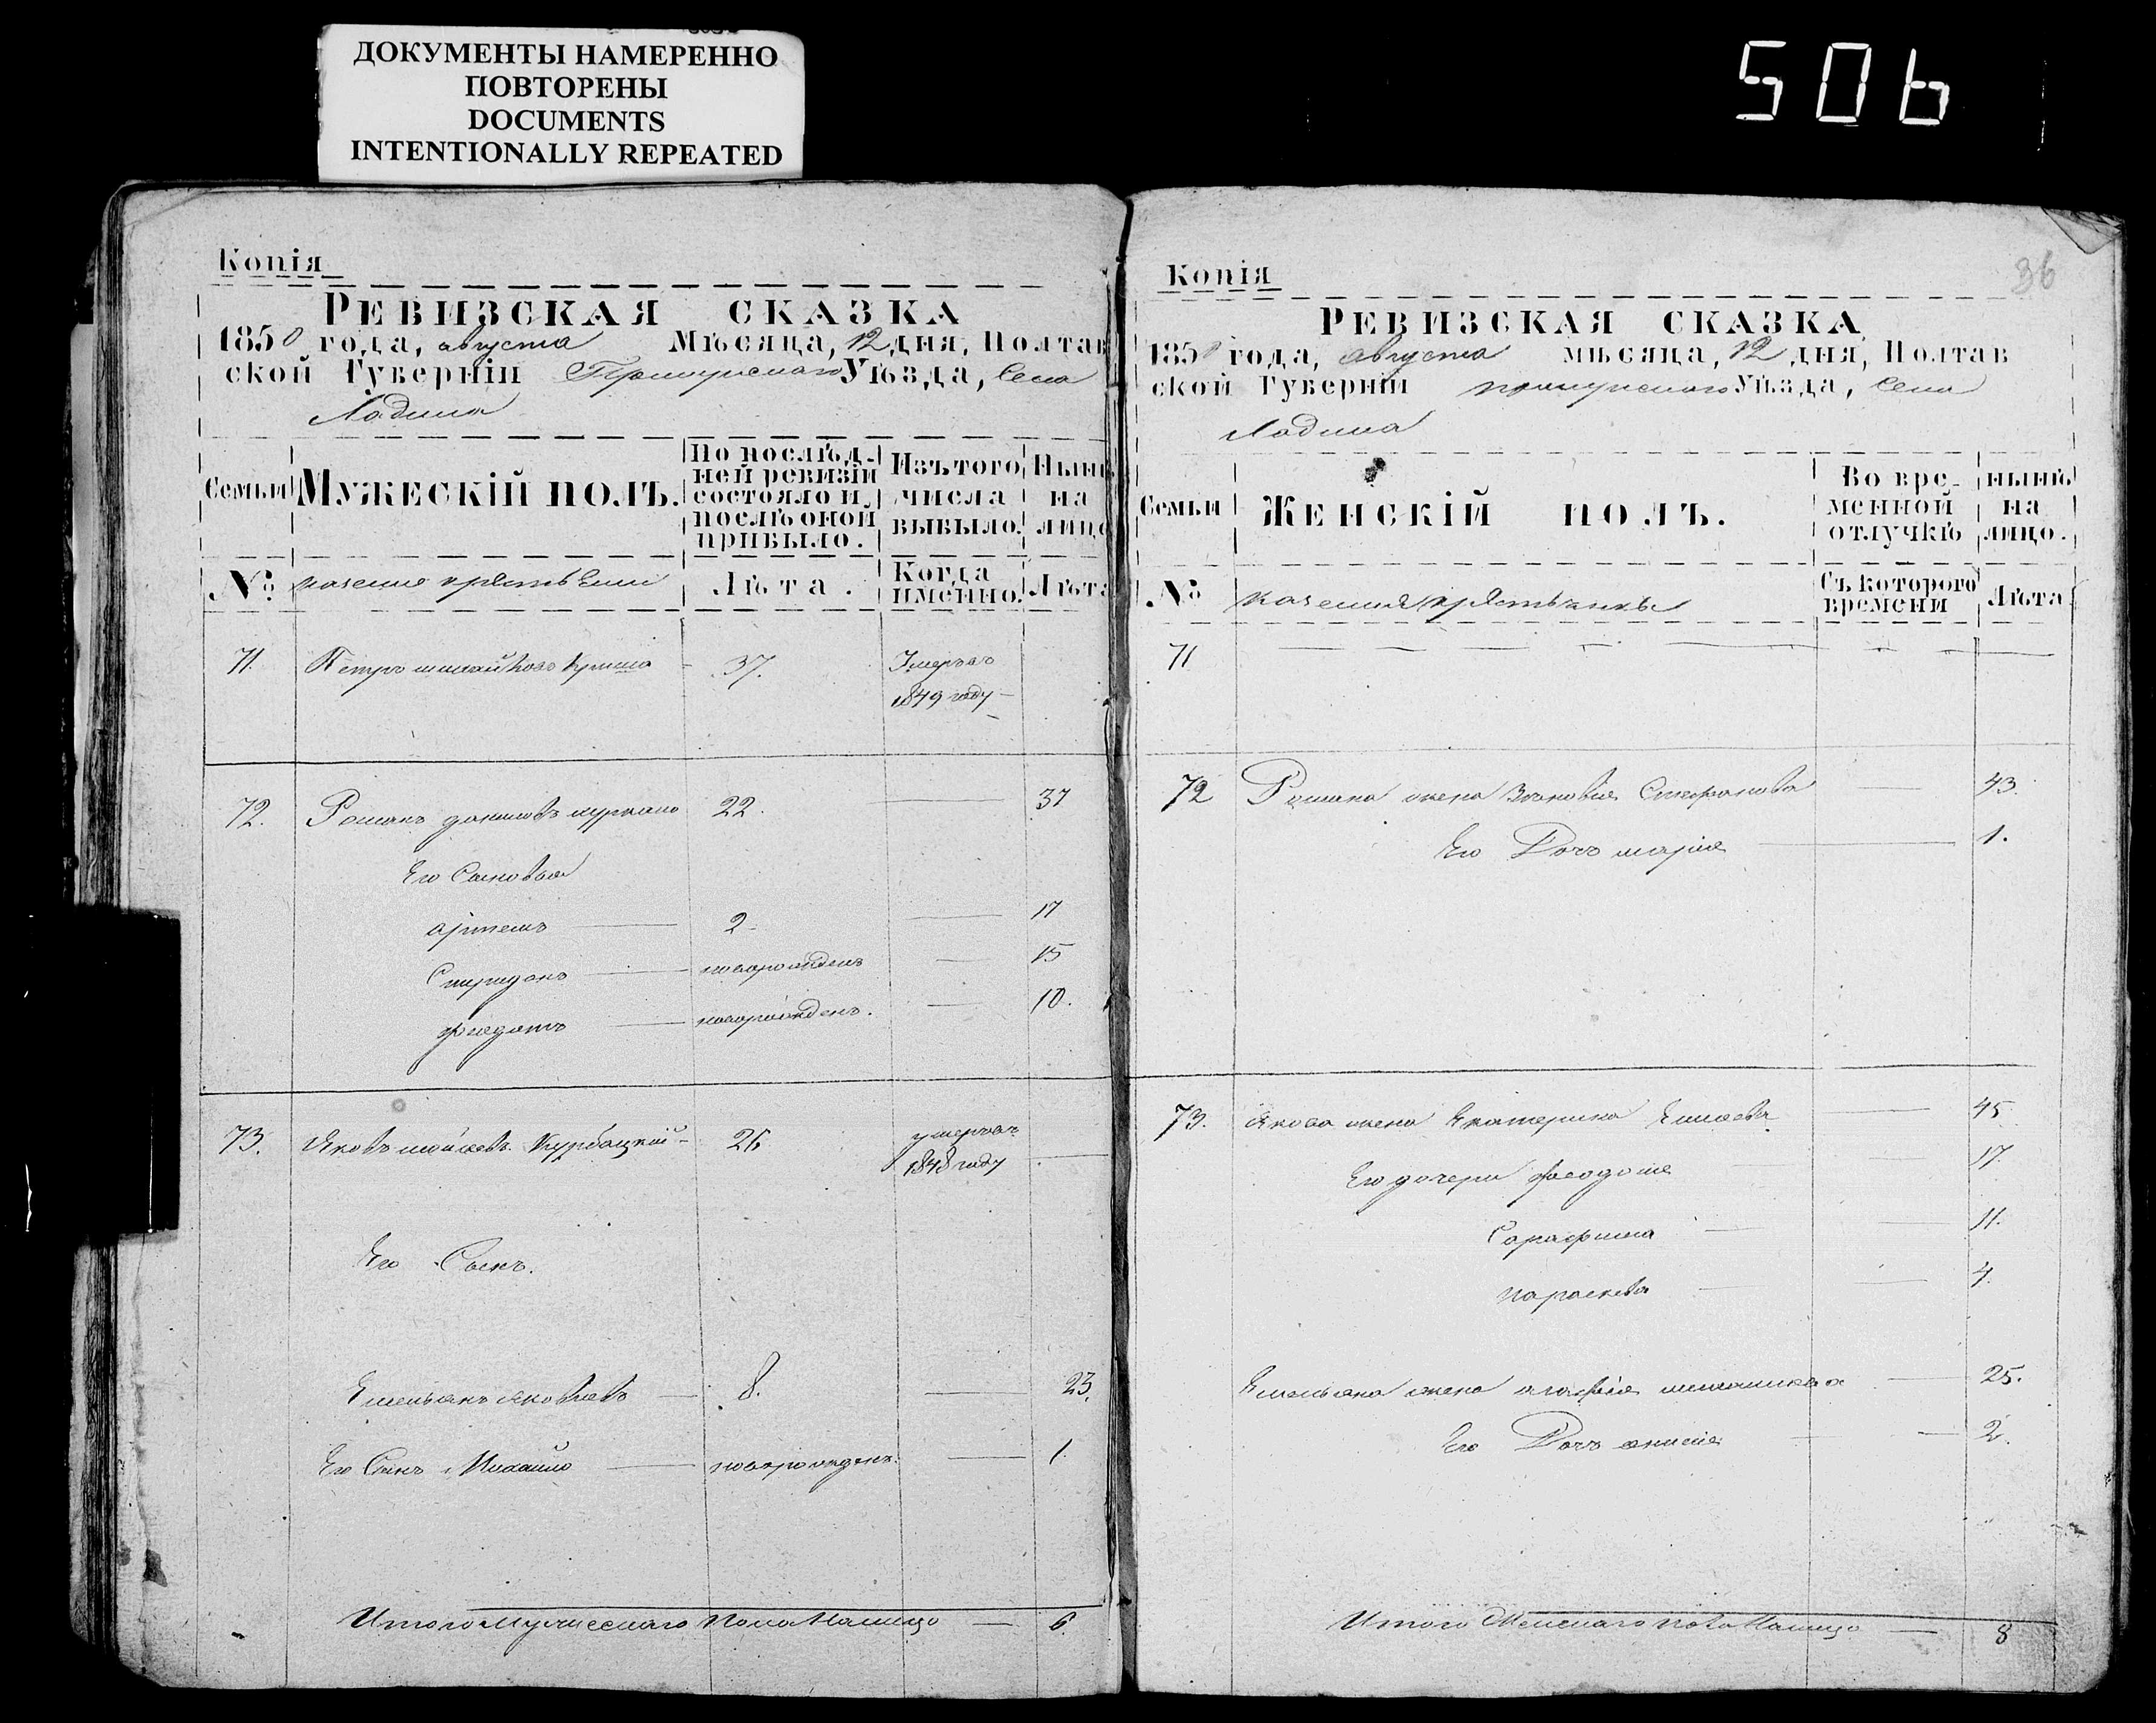 ДОКУМЕНТЫ НАМЕРЕННО
ПОВТОРЕНЫ
DOCUMENTS
INTENTIONALLY REPEATED
506
Копія
РЕВИЗСКАЯ СКАЗКА
1850 года, августа Мѣсяца, 12 дня, Полтав
ской Губерніи Прилуцкаго Уѣзда, Села
Ладина
Семьи
МУЖЕСКІЙ ПОЛЪ.
По послѣд-
ней ревизіи
состояло и
послѣ оной
прибыло.
Изъ того
числа
выбыло.
Нынѣ
на
лицо
№
Лѣта.
Когда
именно.
Лѣта
71. Петръ 37. Умеръ въ
1849 году
72. Романъ Даниловъ 22. 37
Его Сыновья
Артемъ 2 17
Спиридонъ новорожденъ 15
Федотъ новорожденъ. 10.
73. Яковъ Мойсеевъ Курбацкій 26 умеръ въ
1848 году
Его Сынъ.
Емельянъ Яковлевъ 8. 23.
Его Сынъ Михайло новорожденъ. 1.
Итого Мужескаго Пола На лицо 6.
36
Копія
РЕВИЗСКАЯ СКАЗКА
1850 года, августа мѣсяца, 12 дня, Полтав
ской Губерніи Прилуцкаго Уѣзда, Села
Ладина
Семьи
ЖЕНСКІЙ ПОЛЪ.
Во вре-
менной
отлучкѣ
нынѣ
на
лицо.
№
Съ которого
времени
Лѣта
71
72 Романа жена Зѣновія Стефанова 43.
Его Дочь Марія 1.
73. Якова жена Екатерина 45
Его дочери Феодосія 17.
Сарафина 11.
Параскева 4.
Емельяна жена Агафія 25.
Его Дочь 2.
Итого Женскаго пола На лицо 8